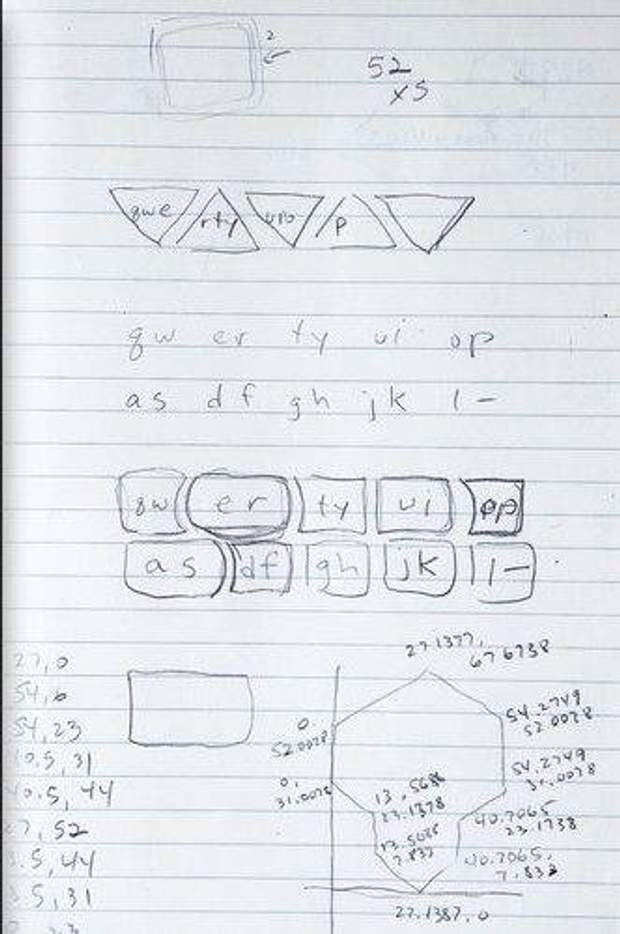 2
52
x5
qwe rty uio p
qw er ty ui op
as df gh jk l-
qw er ty ui op
as df gh jk l-
27,0
54,23
10.5,31
40.5,44
27,52
.5,44
5,31
67.6738
0,
52.0078
54.2749
52.0078
0,
31.0078
54.2749
31.0078
13.5688
23.1378
40.7065
23.1738
7.837
40.7065,
7.832
27.1387,0